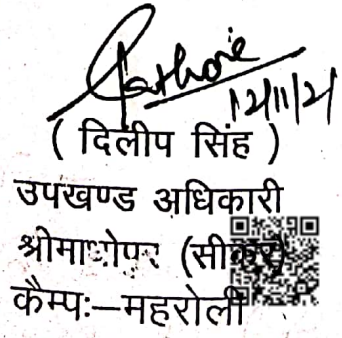 Rathore
12/11/21
( दिलीप सिंह )
उपखण्ड अधिकारी
श्रीमाधोपुर (सीकर)
कैम्पः–महरोली